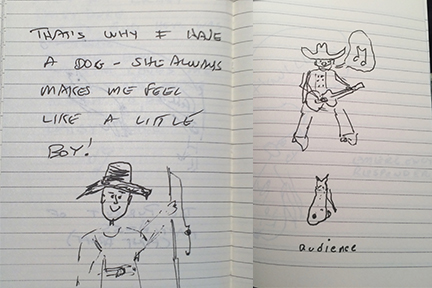 THAT'S WHY I HAVE
A DOG - SHE ALWAYS
MAKES ME FEEL
LIKE A LITTLE
BOY!
audience